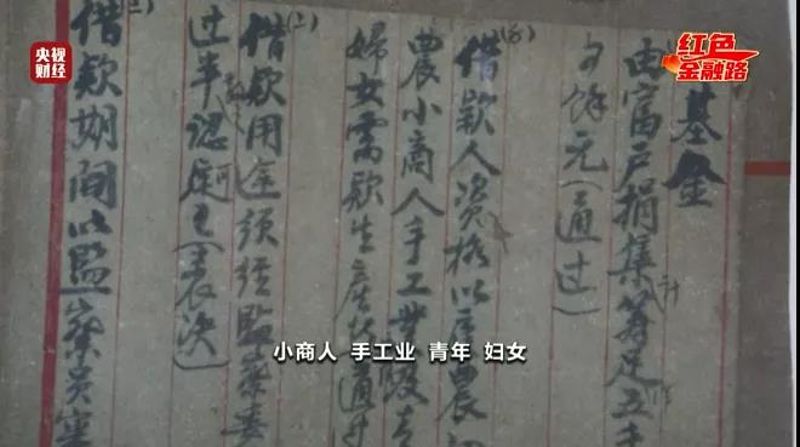 央视
财经
红色
金融路
基金
由富户捐集筹足五
百余元(通过)
借款人资格以
农小商人手工业
婦女需款生産
(二)
借款用途须经監察委
过半認定
(表决)
(三)
借款期间以監察員
小商人 手工业 青年 妇女